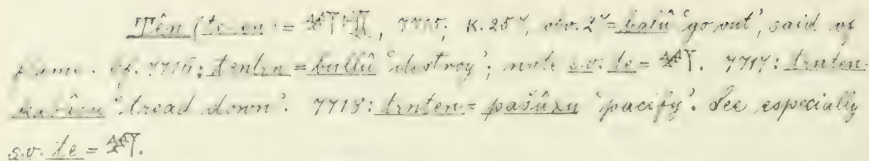 Tên (te-en) = 𒋼𒂗, 7715; K. 25, obv. 2 = balû 'go out', said of
cf. 7716: tenten = bullû 'destroy'; note s.v. te = 𒋼. 7717: tenten
'tread down'. 7718: tenten = pašâxu 'pacify'. See especially
s.v. te = 𒋼.